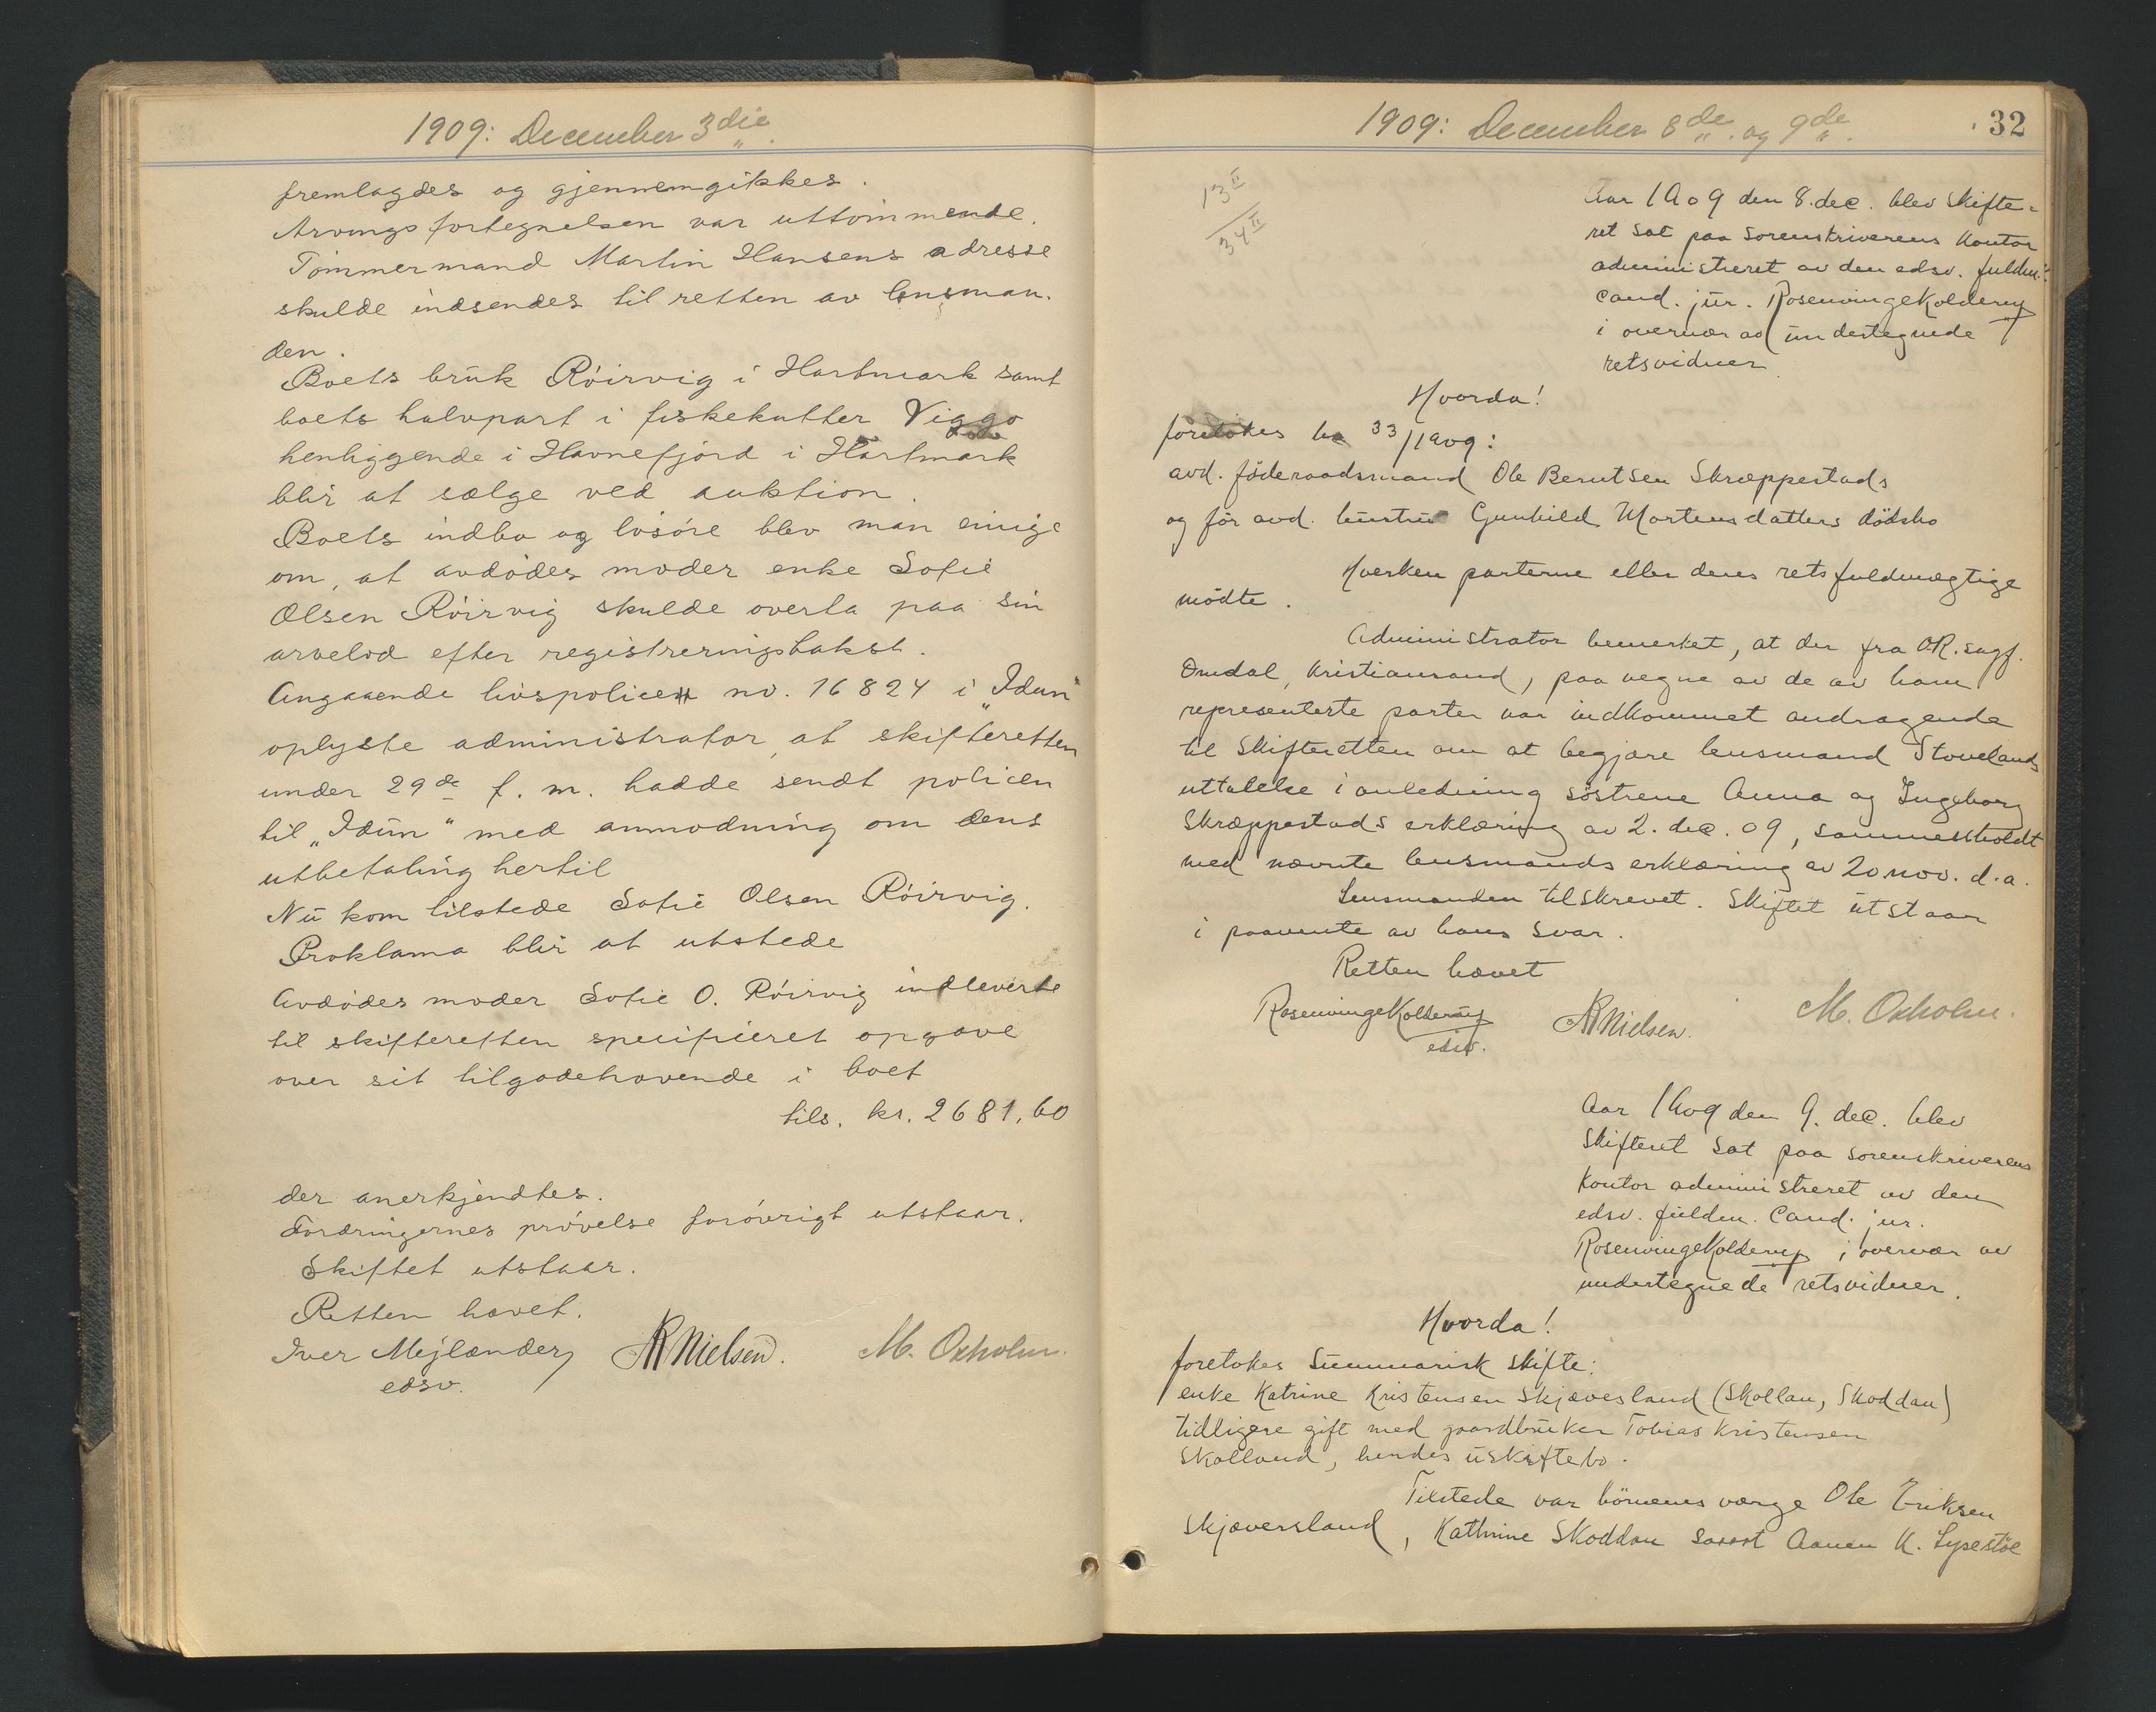 1909: December 3die
fremlagdes og gjennemgikkes.
Arvingsfortegnelsen var uttømmende.
Tømmermand Martin Hansens adresse
skulde indsendes til retten av lensman-
den.
Boets bruk Röirvig i Hartmark samt
boets halvpart i fiskekutter Viggo
henliggende i Havnefjord i Hartmark
blir at sælge ved auktion.
Boets indbo og løsøre blev man enige
om, at avdödes moder enke Sofie
Olsen Röirvig skulde overta paa sin
arvelod efter registreringstakst.
Angaaende livspolicen no. 16824 i "Idun"
oplyste administrator, at skifteretten
under 29de f. m. hadde sendt policen
til "Idun" med anmodning om dens
utbetaling hertil
Nu kom tilstede Sofie Olsen Röirvig.
Proklama blir at utstede
Avdödes moder Sofie O. Röirvig indleverte
til skifteretten specificeret opgave
over sit tilgodehavende i boet
tils. kr. 2681,60
der anerkjendtes.
Fordringernes prövelse forövrigt utstaar.
Skiftet utstaar.
Retten hævet.
Iver Mejlænder NRNielsen. M. Oxholm.
edsv.
1909: December 8de og 9de. 32
13II
34II
Aar 1909 den 8. dec. blev skifte-
ret sat paa sorenskriverens kontor
administreret av den edsv. fuldm.
cand. jur. RosenvingeKolderup
i overvær av undertegnede
retsvidner.
Hvorda!
foretokes 33/1909:
avd. föderaadsmand Ole Berntsen Skræppestads
og för avd. hustru Gunhild Mortensdatters dödsbo
Hverken parterne eller deres retsfuldmægtige
mödte.
Administrator bemerket, at der fra OR.sagf.
Omdal, Kristiansand, paa vegne av de av ham
representerte parter var indkommet andragende
til skifteretten om at begjære lensmand Stovelands
uttalelse i anledning söstrene Anna og Ingeborg
Skræppestads erklæring av 2. dec. 09, sammenholdt
med nævnte lensmands erklæring av 20. nov. d.a.
Lensmanden tilskrevet. Skiftet utstaar
i paavente av hans svar.
Retten hævet
RosenvingeKolderup NRNielsen. M. Oxholm.
edsv.
Aar 1909 den 9. dec. blev
skifteret sat paa sorenskriverens
kontor administreret av den
edsv. fuldm. cand. jur.
RosenvingeKolderup i overvær av
undertegnede retsvidner.
Hvorda!
foretokes summarisk skifte:
enke Katrine Kristensen Skjævesland (Skollan, Skoddan)
tidligere gift med gaardbruker Tobias Kristensen
Skolland, hendes uskiftebo.
Tilstede var börnenes værge Ole Eriksen
Skjæversland, Kathrine Skoddan samt Aanen K. Lysestöl